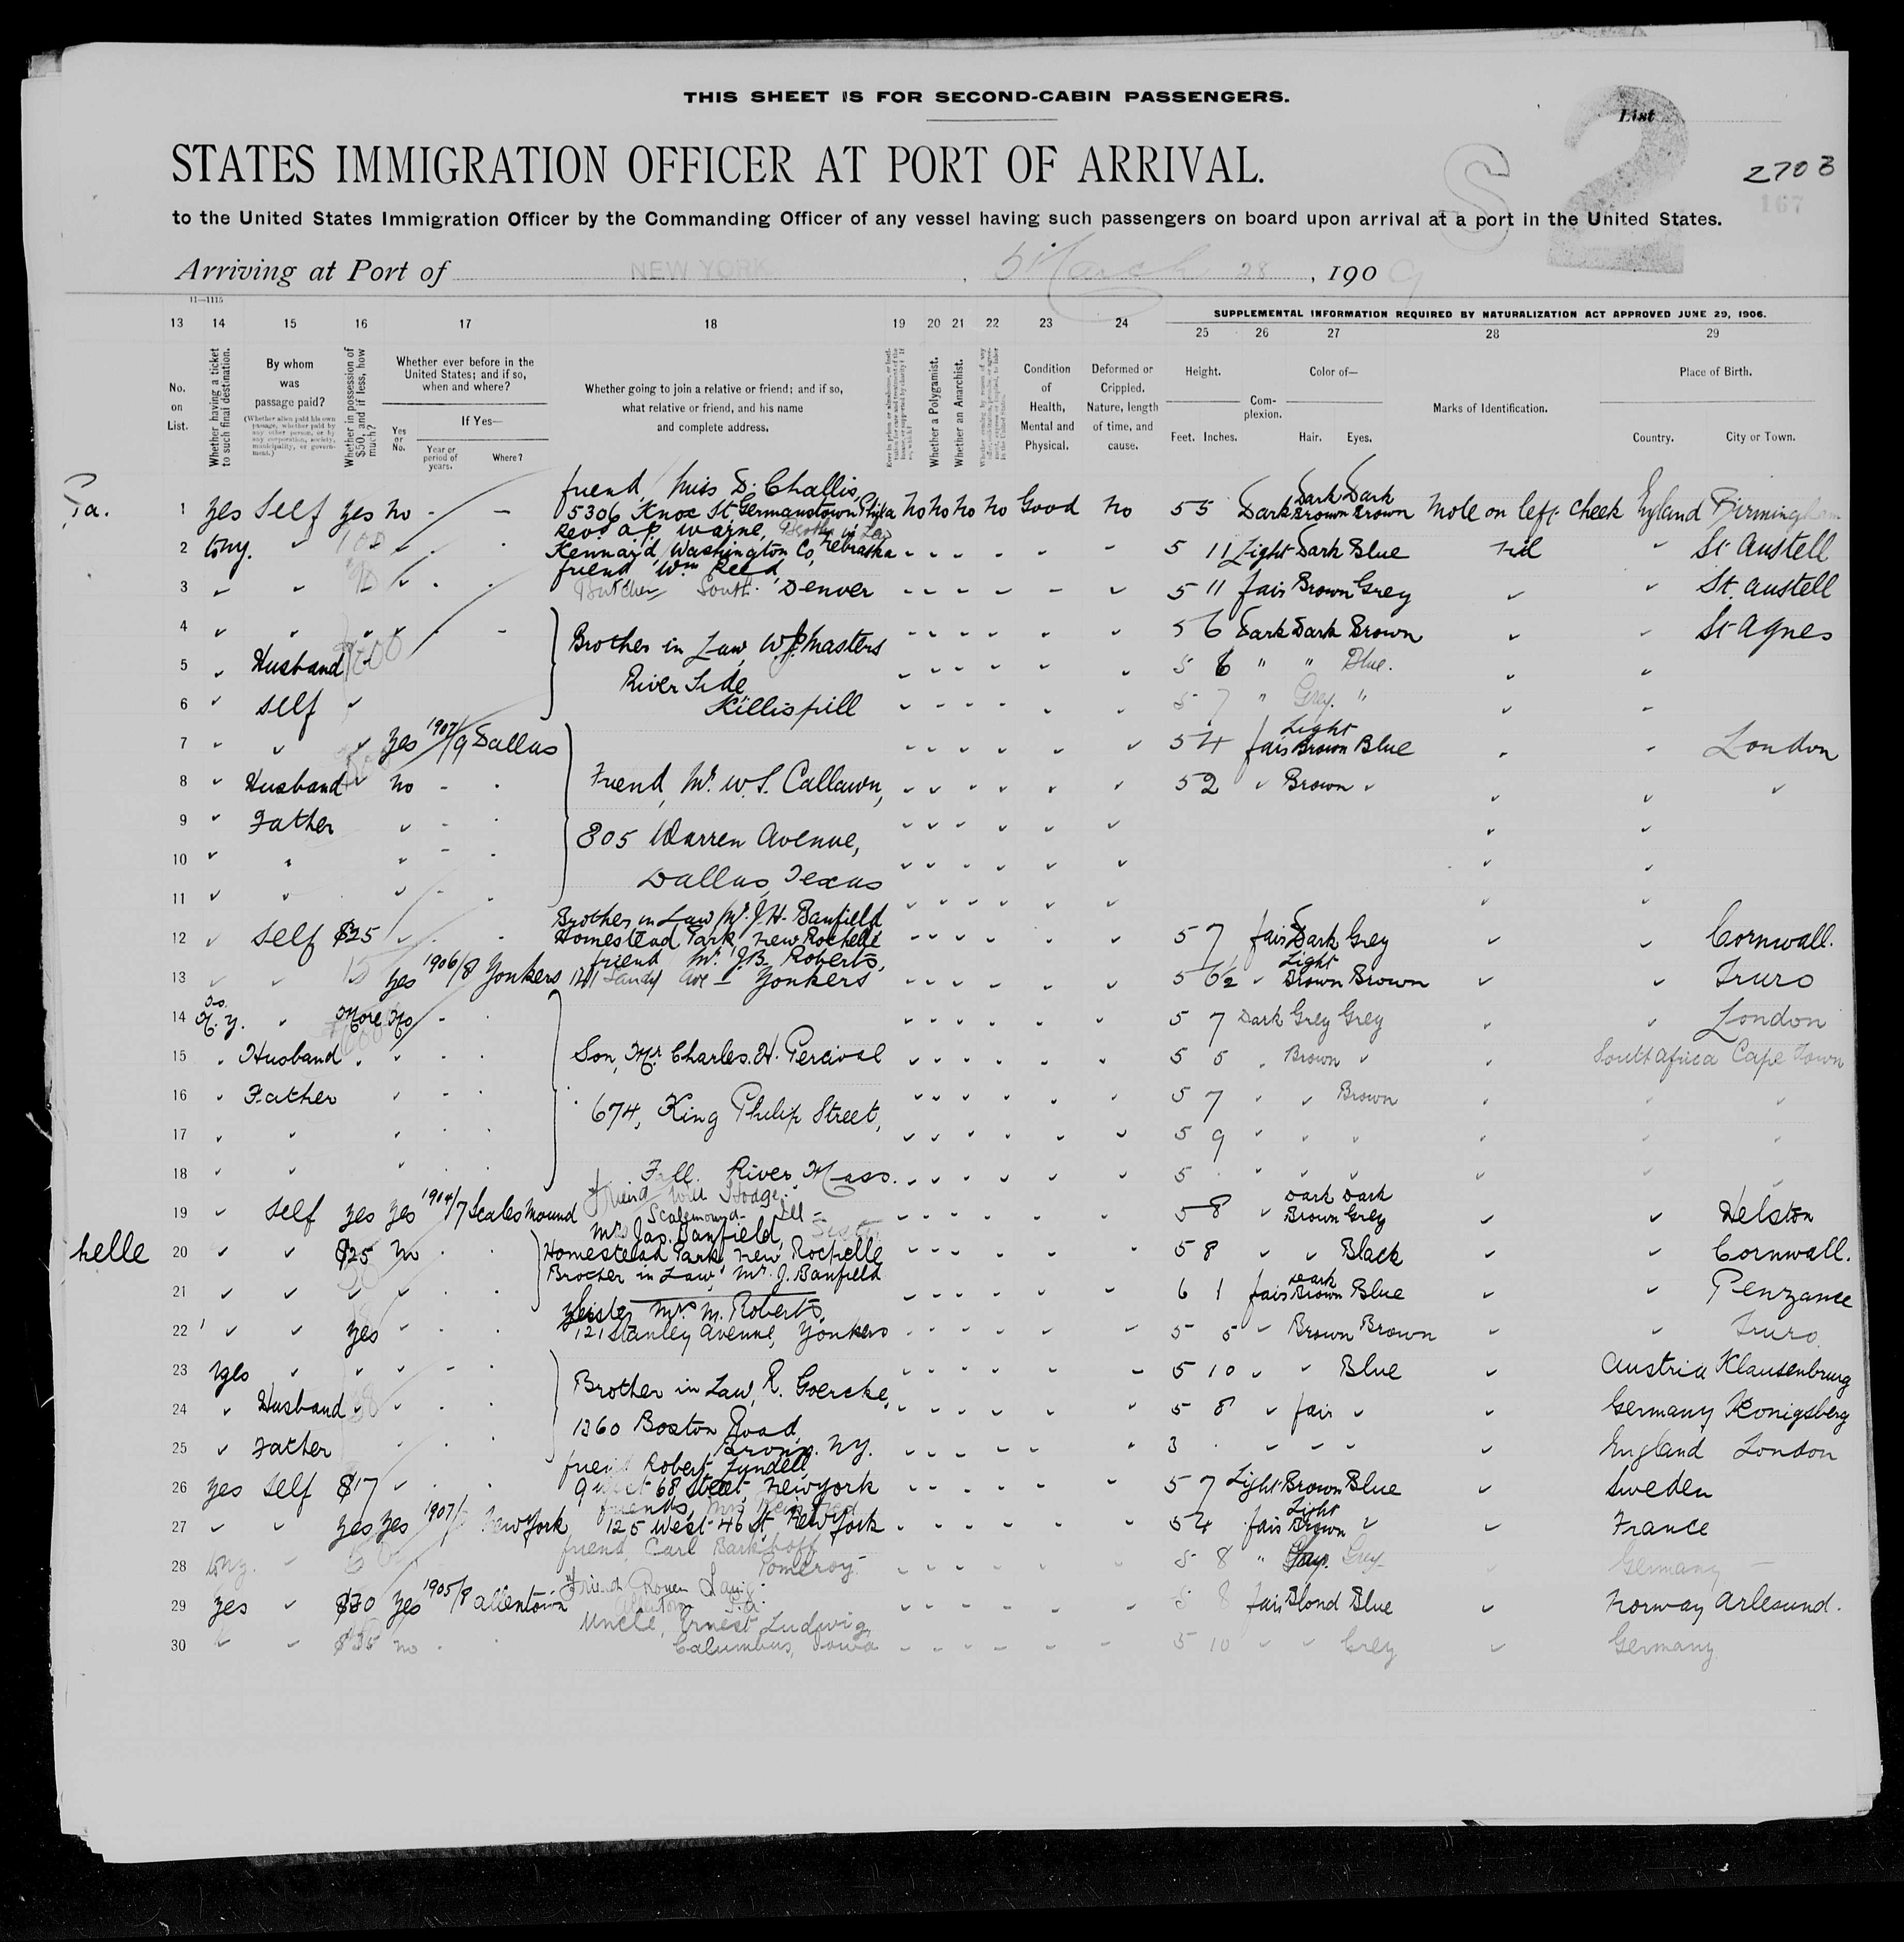 THIS SHEET IS FOR SECOND-CABIN PASSENGERS.
List
2
S
STATES IMMIGRATION OFFICER AT PORT OF ARRIVAL.
2703
167
to the United States Immigration Officer by the Commanding Officer of any vessel having such passengers on board upon arrival at a port in the United States.
Arriving at Port of NEW YORK, March 28, 1909
11—1115
SUPPLEMENTAL INFORMATION REQUIRED BY NATURALIZATION ACT APPROVED JUNE 29, 1906.
13 14 15 16 17 18 19 20 21 22 23 24 25 26 27 28 29
No. on List.
Whether having a ticket to such final destination.
By whom was passage paid?
(Whether alien paid his own passage, whether paid by any other person, or by any corporation, society, municipality, or government.)
Whether in possession of $50, and if less, how much?
Whether ever before in the United States; and if so, when and where?
Yes or No.
If Yes—
Year or period of years.
Where?
Whether going to join a relative or friend; and if so, what relative or friend, and his name and complete address.
Whether a Polygamist.
Whether an Anarchist.
Condition of Health, Mental and Physical.
Deformed or Crippled. Nature, length of time, and cause.
Height.
Feet. Inches.
Complexion.
Color of—
Hair. Eyes.
Marks of Identification.
Place of Birth.
Country. City or Town.
Pa.
friend, Miss D. Challis,
1 yes Self yes no - - 5306 Knox St Germantown Phila no no no no Good no 5 5 Dark Dark Brown Dark Brown Mole on left cheek England Birmingham
Rev. A.P. Wajne, Brother in Law
2 to ny. " 100 " Kennard, Washington Co, Nebraska 5 11 Light Dark Blue nil " St Austell
friend Wm Reed,
3 " " " Butcher South Denver 5 11 fair Brown Grey " " St. Austell
4 " " " " - 5 6 Dark Dark Brown " " St Agnes
Brother in Law, W.J. Masters
5 " Husband " 5 6 " " Blue. " "
River Side
6 " self " Killispill 5 7 " Grey. " " "
7 " " " yes 1907/9 Dallas 5 4 fair Light Brown Blue " " London
8 " Husband " no - - Friend, Mr. W.S. Callawn, 5 2 " Brown " " " "
9 " Father " - -
805 Warren Avenue,
10 " " " - -
Dallas, Texas
11 " " " - -
Brother in Law Mr. J.H. Banfield
12 " Self $25 " Homestead Park, New Rochelle 5 7 fair Dark Grey " " Cornwall.
friend Mr. J.B. Roberts,
13 " " 15 yes 1906/8 Yonkers Ave Yonkers 5 6½ " Light Brown Brown " " Truro
14 to N.Y. " More No - 5 7 Dark Grey Grey " " London
15 " Husband " " Son, Mr Charles. H. Percival 5 5 " Brown " " South Africa Cape Town
16 " Father " - 5 7 " " Brown " "
674, King Philip Street,
17 " " " 5 9 " " " " "
18 " " " Fall River, Mass. 5 " " " " "
Friend Will Hodge.
19 " Self yes yes 1904/7 Scales Mound Scalemound Ill 5 8 " Dark Brown Dark Grey " " Helston
Mrs Jas. Banfield, Sister
helle 20 " " $25 no Homestead Park, New Rochelle 5 8 " " Black " " Cornwall.
Brother in Law, Mr. J. Banfield
21 " " " " 6 1 fair Dark Brown Blue " " Penzance
Sister Mrs M. Roberts,
22 " " yes " 121 Stanley Avenue, Yonkers 5 5 " Brown Brown " " Truro
23 yes " " " - 5 10 " " Blue " Austria Klausenburg
Brother in Law, R. Goercke,
24 " Husband " " 5 8 " fair " " Germany Konigsberg
1360 Boston Road,
25 " Father " Bronx. NY. 3 " " " " England London
friend Robert Lundell,
26 yes Self $17 " 68 Street, New York 5 7 Light Brown Blue " Sweden
friends, Mrs
27 " " yes yes 1907/ New York 125 West 46 St, New York 5 4 fair Light Brown " " France
friend, Carl Barkhoff
28 to ny. " Pomeroy 5 8 " Grey Germany
Friend
29 yes " $30 yes 1905/8 Allentown Allentown Pa. 5 8 fair Blond Blue " Norway Arlesund.
Uncle, Ernest Ludwig,
30 " " no Columbus, Iowa 5 10 " " Grey " Germany